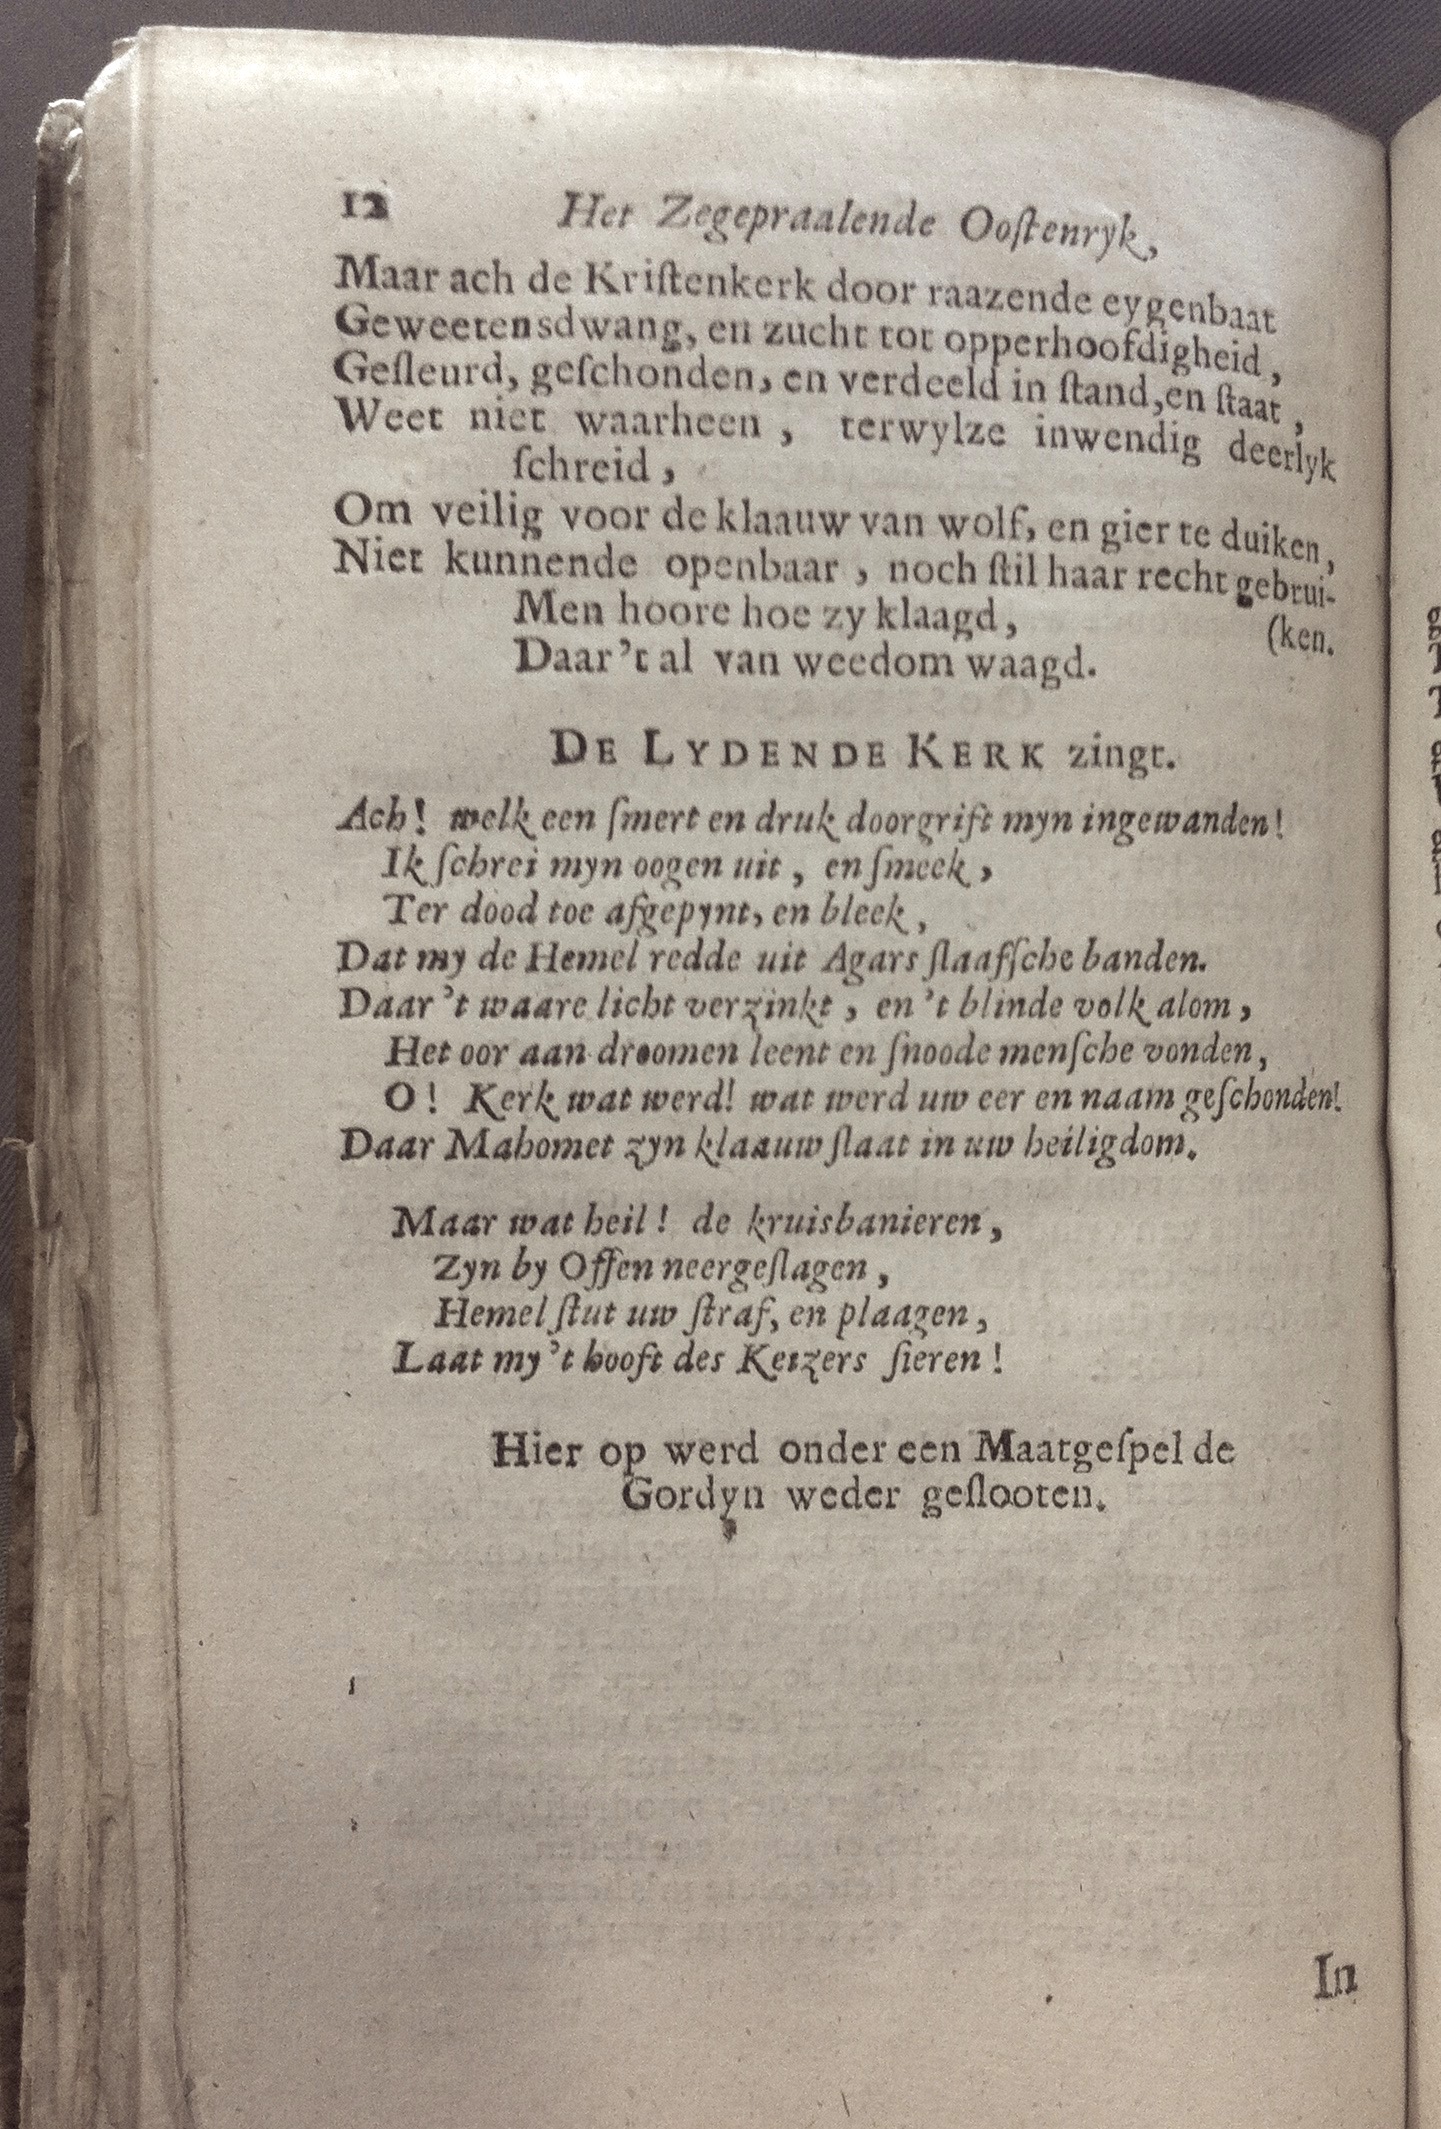 12 Het Zegepraalende Ooſtenryk,
Maar ach de Kriſtenkerk door raazende eygenbaat
Geweetensdwang, en zucht tot opperhoofdigheid,
Geſleurd, geſchonden, en verdeeld in ſtand, en ſtaat,
Weet niet waarheen, terwylze inwendig deerlyk
ſchreid,
Om veilig voor de klaauw van wolf, en gier te duiken,
Niet kunnende openbaar, noch ſtil haar recht gebrui-
Men hoore hoe zy klaagd, (ken.
Daar 't al van weedom waagd.
DE LYDENDE KERK zingt.
Ach! welk een ſmert en druk doorgrift myn ingewanden!
Ik ſchrei myn oogen uit, en ſmeek,
Ter dood toe afgepynt, en bleek,
Dat my de Hemel redde uit Agars ſlaafſche banden.
Daar 't waare licht verzinkt, en 't blinde volk alom,
Het oor aan droomen leent en ſnoode menſche vonden,
O! Kerk wat werd! wat werd uw eer en naam geſchonden!
Daar Mahomet zyn klaauw ſlaat in uw heiligdom.
Maar wat heil! de kruisbanieren,
Zyn by Offen neergeſlagen,
Hemel ſtut uw ſtraf, en plaagen,
Laat my 't hooft des Keizers ſieren!
Hier op werd onder een Maatgeſpel de
Gordyn weder geſlooten.
In